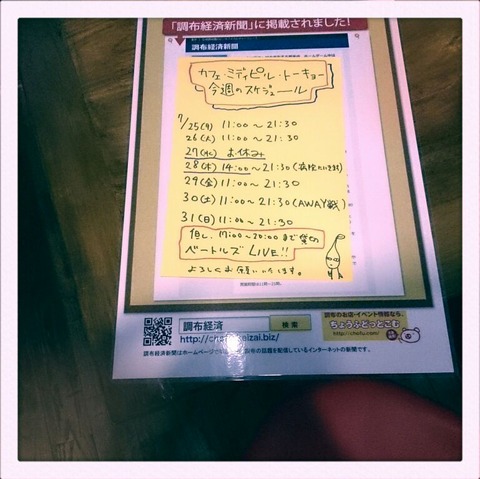 「調布経済新聞」に掲載されました!
調布経済新聞
カフェ・ミディピル・トーキョー
今週のスケジュール
7/25(月) 11:00〜21:30
26(火) 11:00〜21:30
27(水) お休み
28(木) 14:00〜21:30
29(金) 11:00〜21:30
30(土) 11:00〜21:30(AWAY戦)
31(日) 11:00〜21:30
但し、17:00〜20:00まで貸切
ベートルズ LIVE!!
よろしくお願いいたします。
調布経済
検索
http://cho
eizai.biz/
調布経済新聞はホームページで
の話題を配信しているインターネットの新聞です。
調布のお店・イベント情報なら、
ちょうふどっとこむ
http://chofu.com/